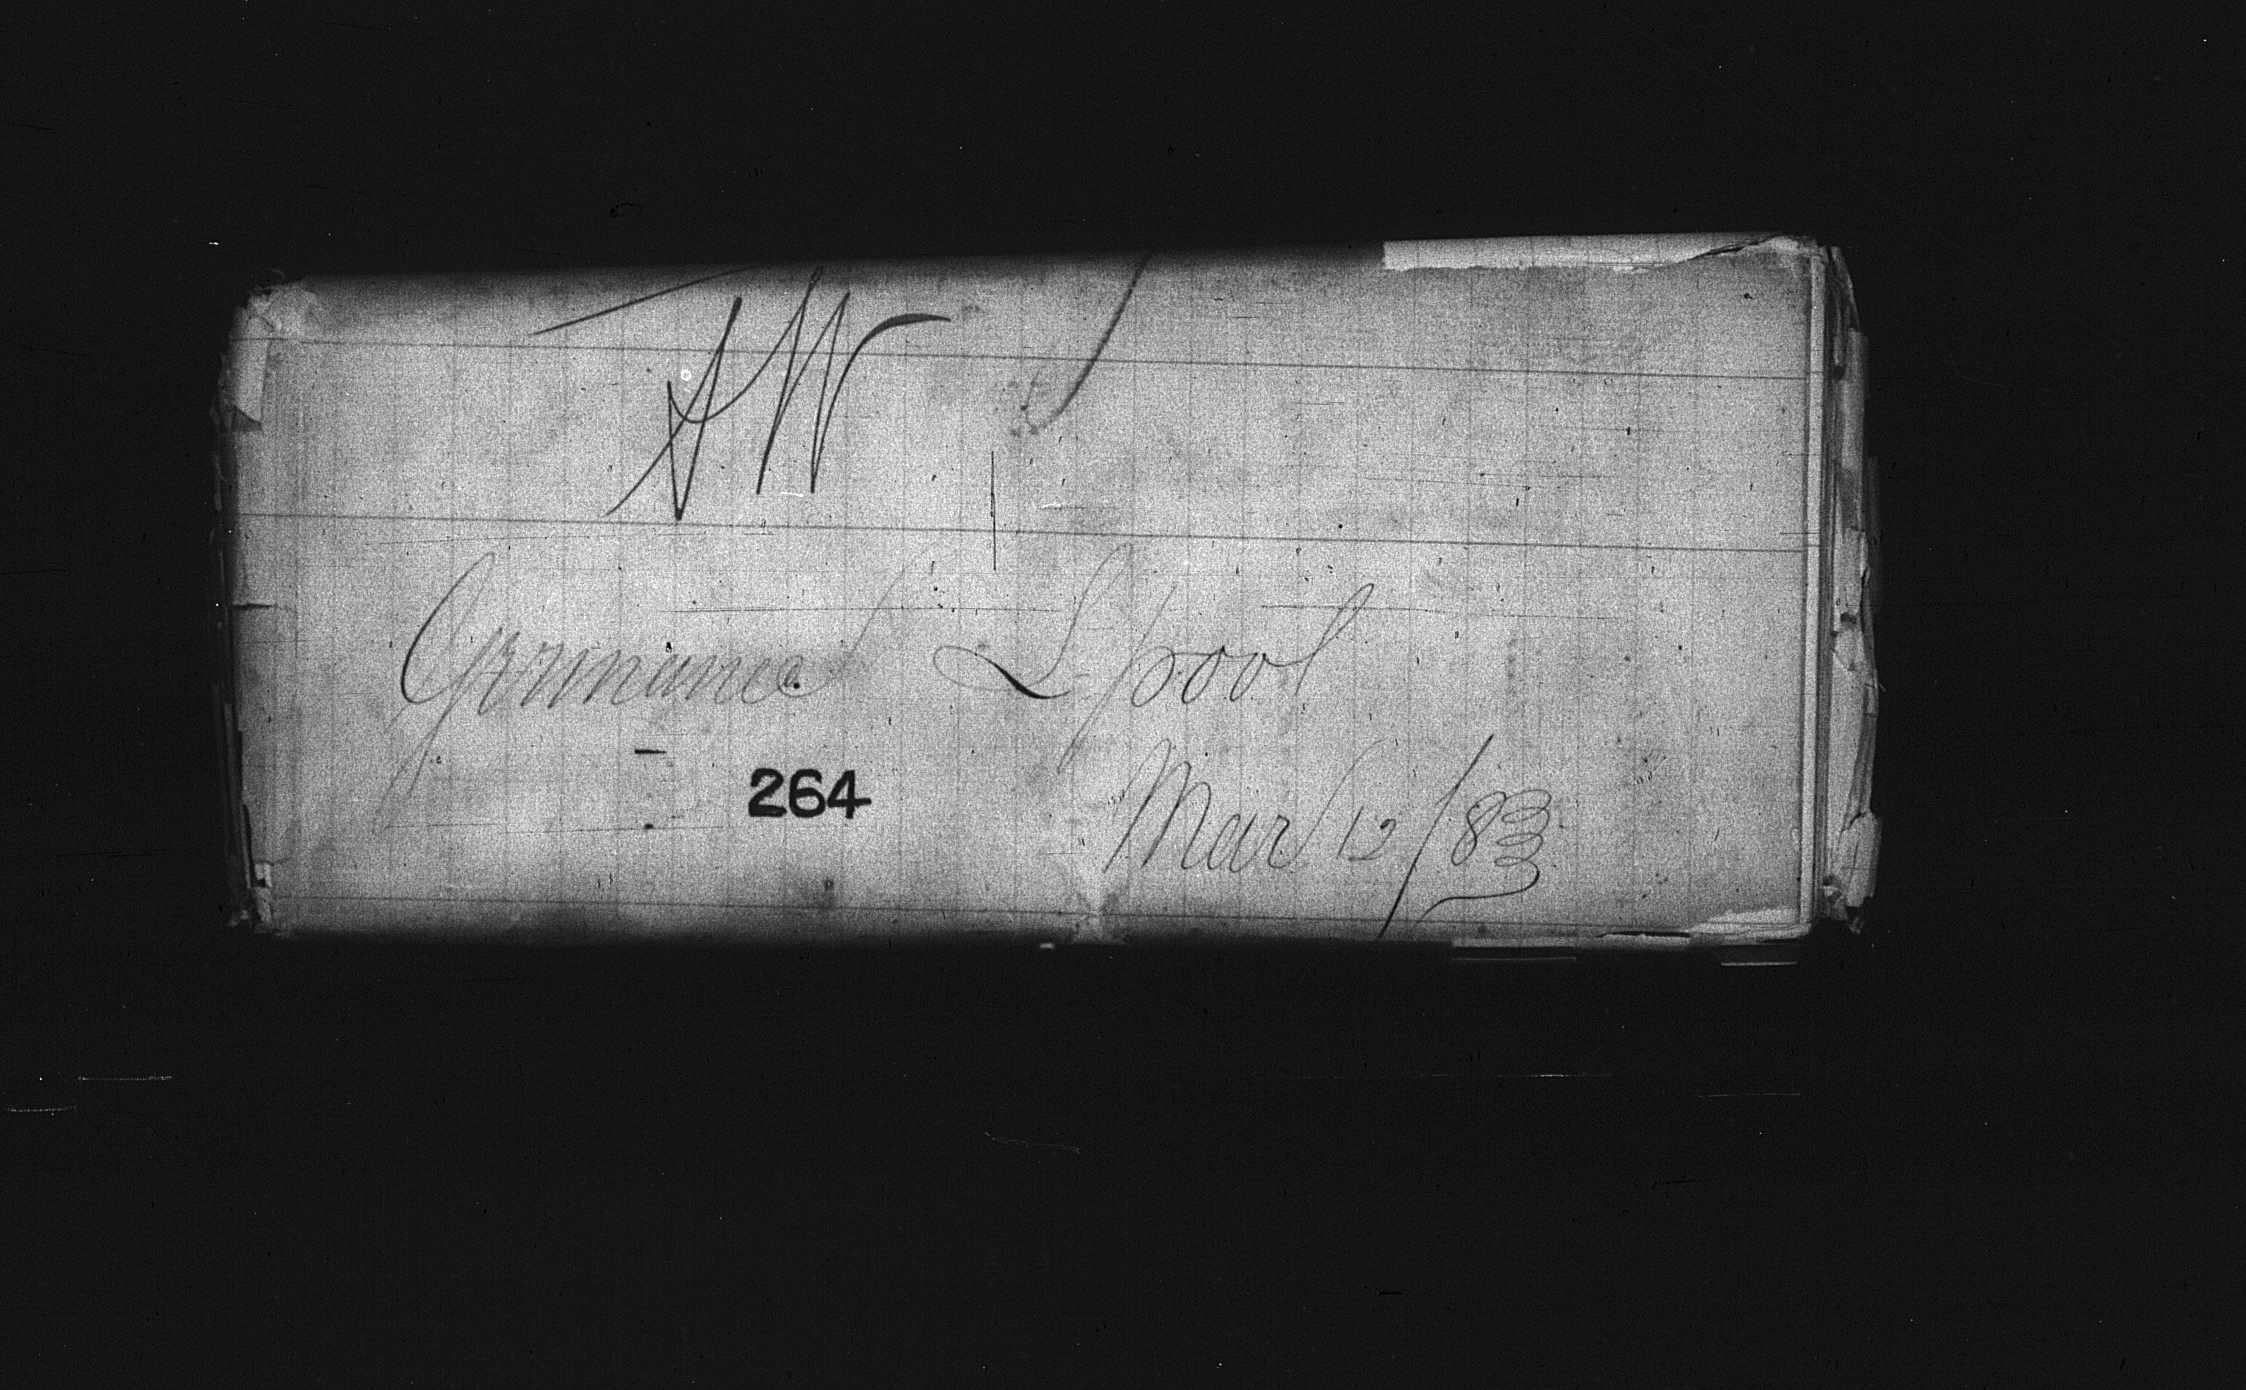 AW
Germanic L-pool
264
Mar 12/83